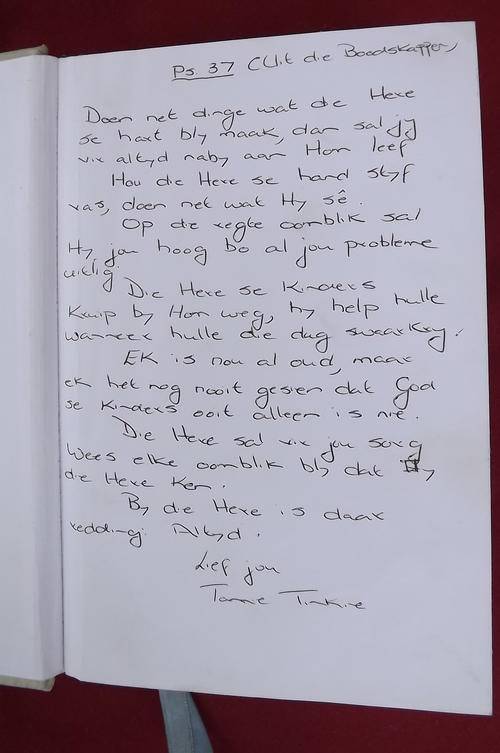 Ps. 37 (Uit die Boodskapper)
Doen net dinge wat die Here
se hart bly maak, dan sal jy
vir altyd naby aan Hom leef
Hou die Here se hand styf
vas, doen net wat Hy sê.
Op die regte oomblik sal
Hy jou hoog bo al jou probleme
uitlig.
Die Here se Kinders
Kruip by Hom weg, hy help hulle
wanneer hulle die dag swaarkry.
Ek is nou al oud, maar
ek het nog nooit gesien dat God
se Kinders ooit alleen is nie.
Die Here sal vir jou sorg
Wees elke oomblik bly dat jy
die Here Ken.
By die Here is daar
redding: Altyd.
Lief jou
Tannie